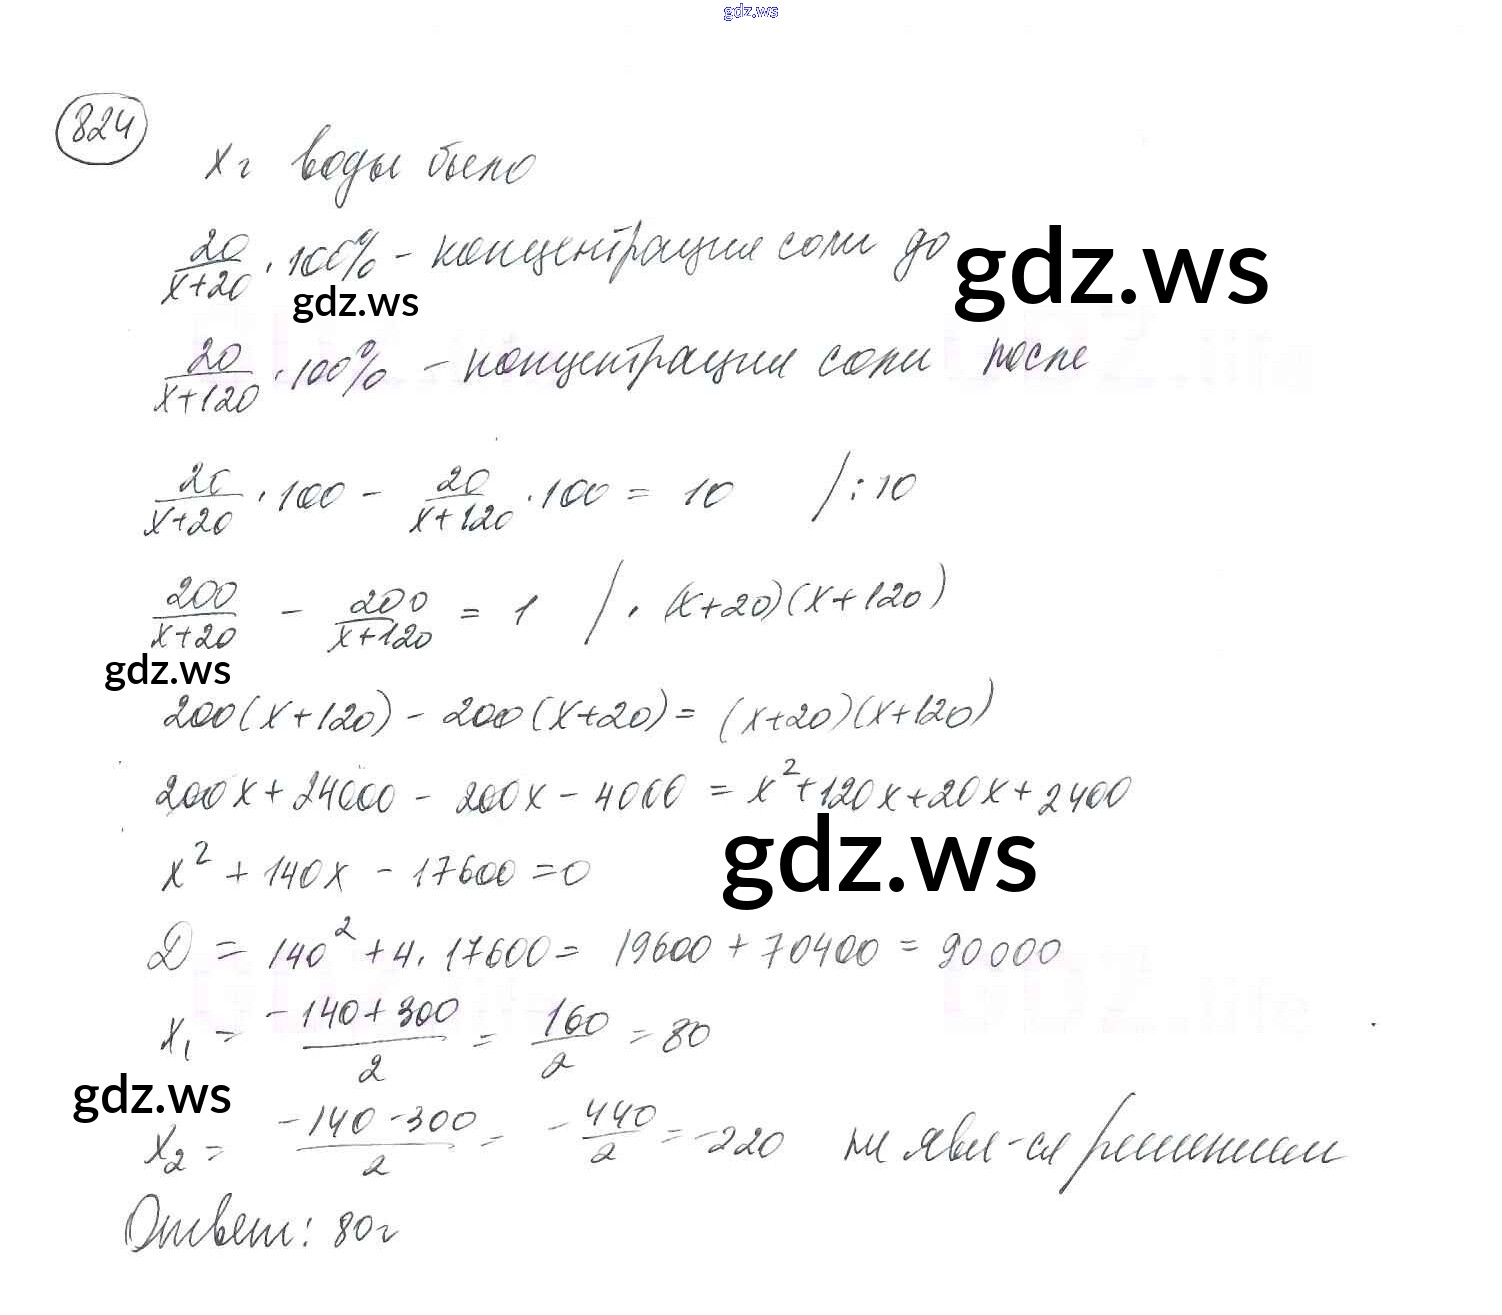 gdz.ws
824
x г воды было
20/(x+20) · 100% – концентрация соли до
gdz.ws
gdz.ws
20/(x+120) · 100% – концентрация соли после
20/(x+20) · 100 – 20/(x+120) · 100 = 10 /:10
200/(x+20) – 200/(x+120) = 1 /· (x+20)(x+120)
gdz.ws
200(x+120) – 200(x+20) = (x+20)(x+120)
200x + 24000 – 200x – 4000 = x² + 120x + 20x + 2400
gdz.ws
x² + 140x – 17600 = 0
D = 140² + 4 · 17600 = 19600 + 70400 = 90000
x₁ = (–140+300)/2 = 160/2 = 80
gdz.ws
x₂ = (–140–300)/2 = –440/2 = –220 не явл-ся решением
Ответ: 80г